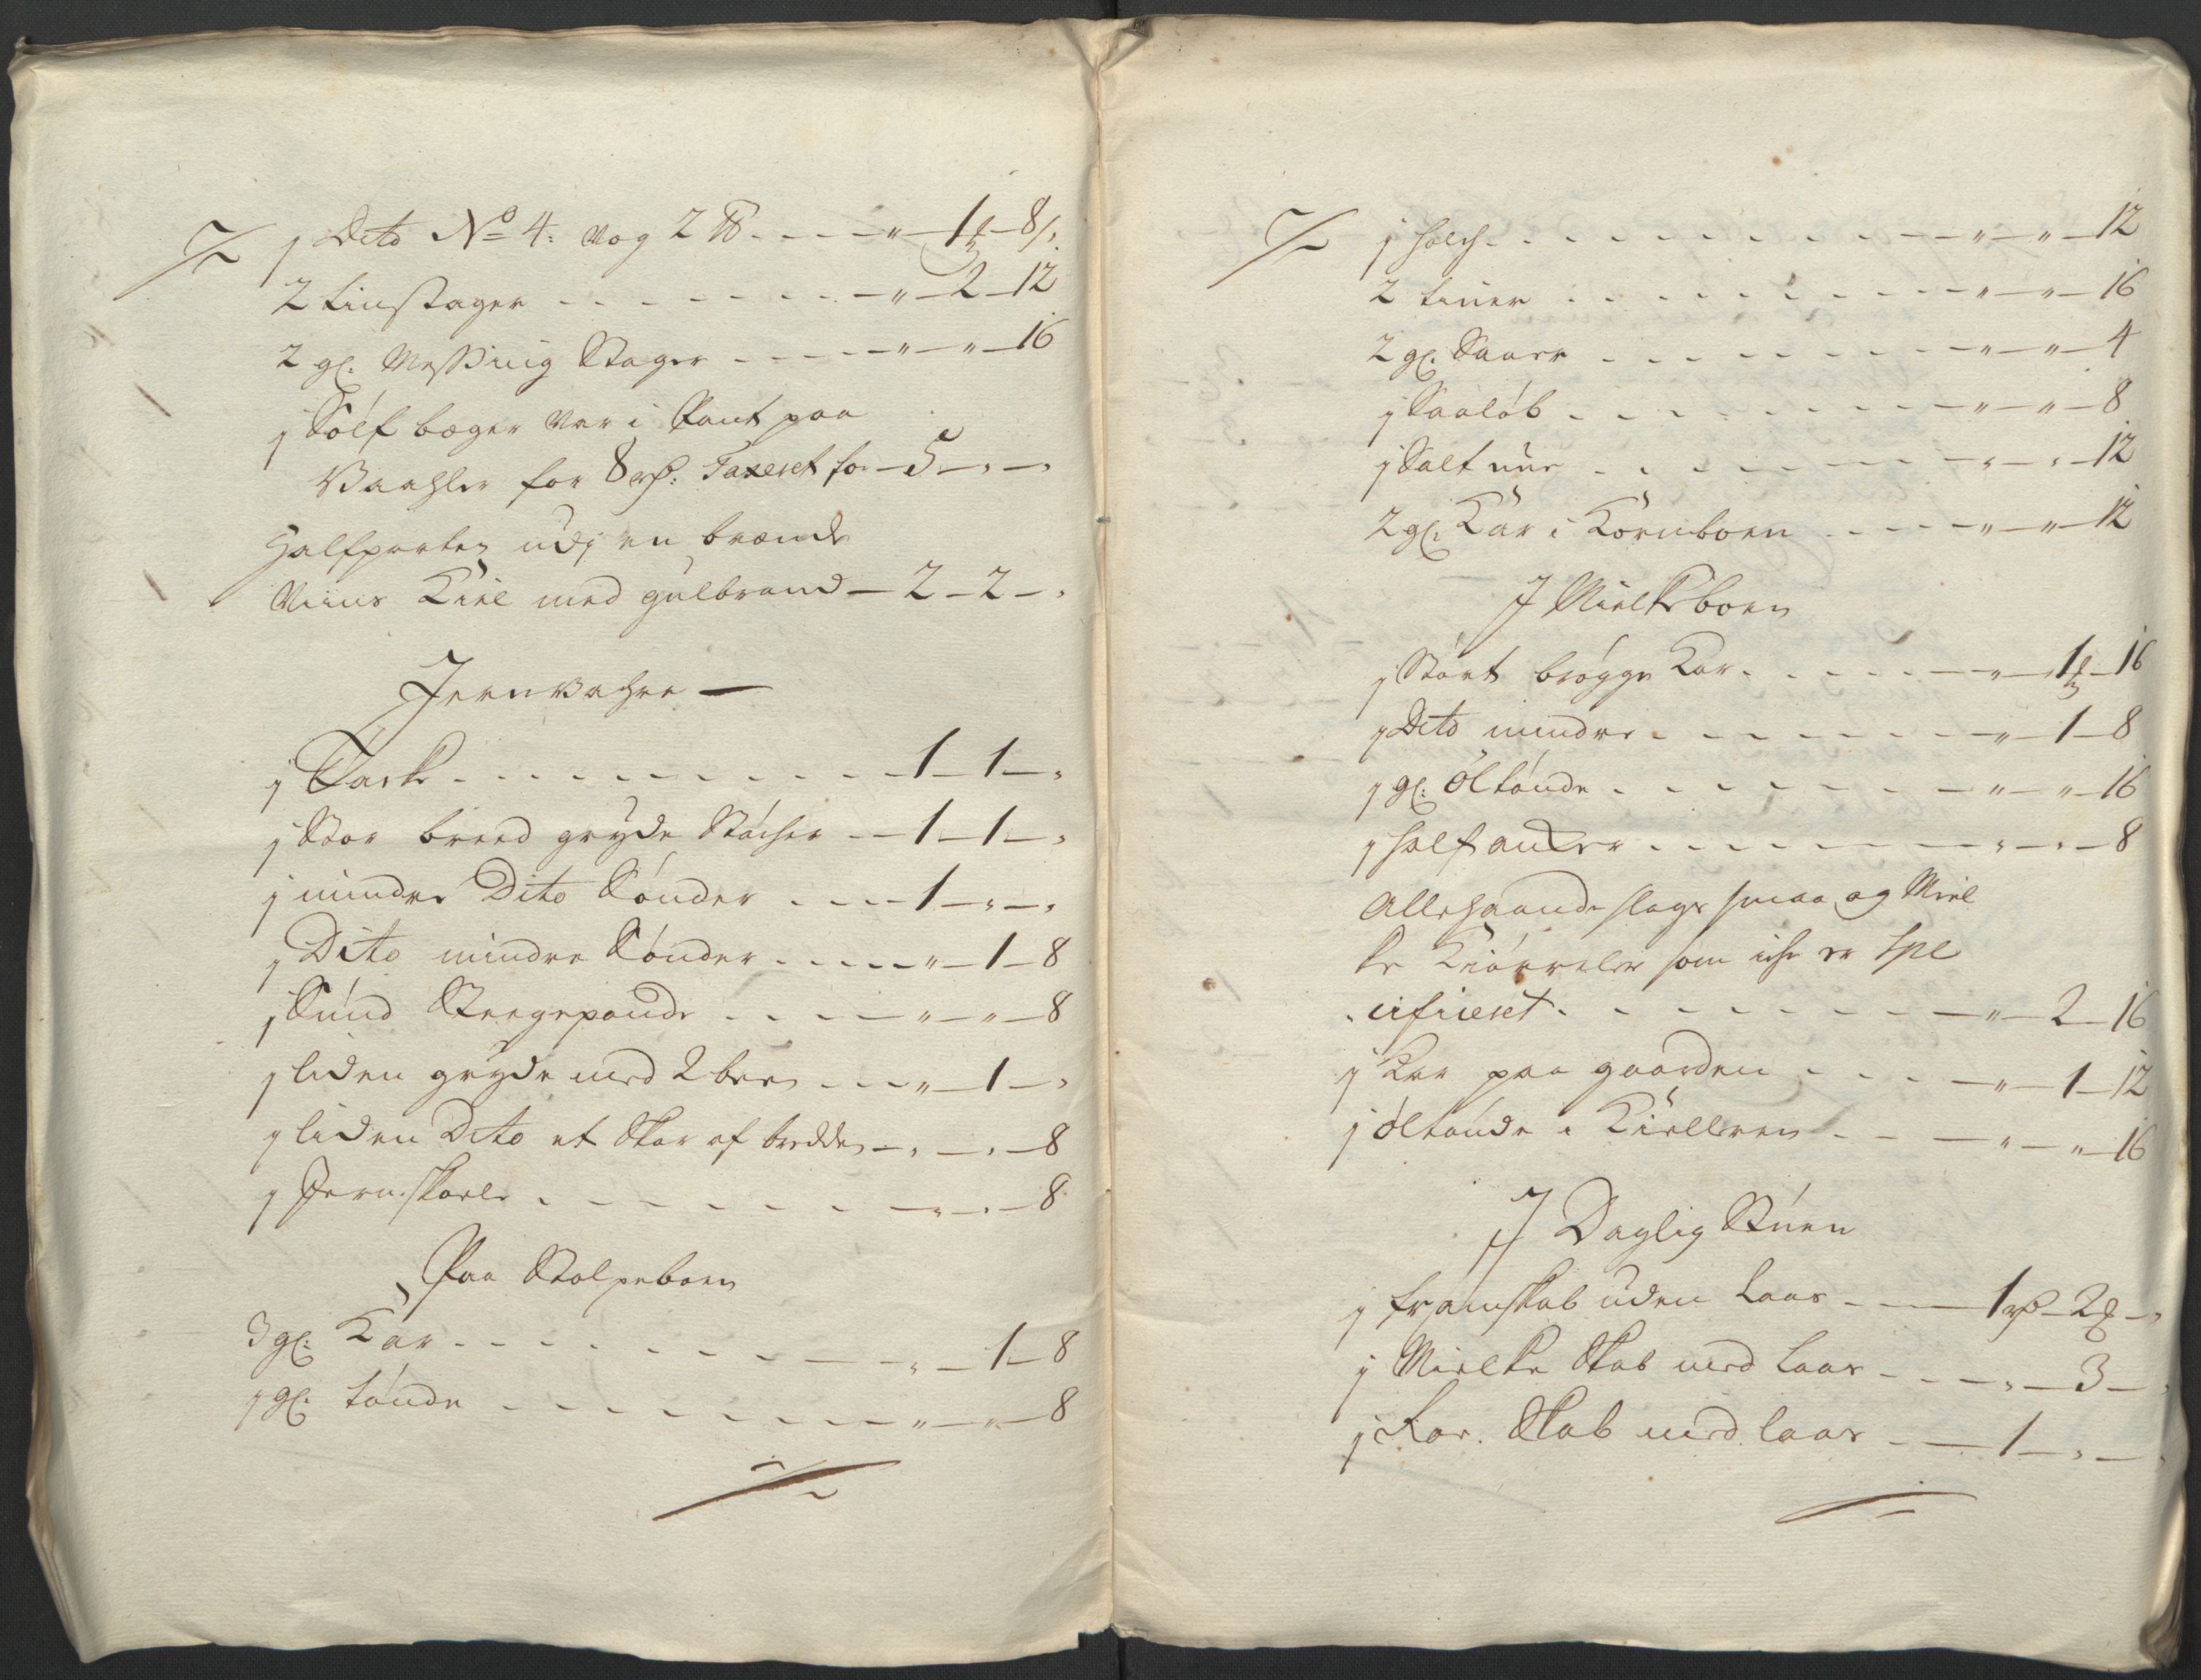 1 Dito No 4: vog 2 ℔ - - - " - 1 - 8 s.
2 tinstager - - - - - - " - 2 - 12
2 gl. Messing Stager - - - - " - " - 16
1 Sölf bæger var i Pant paa
for 8 rd: Taxeret for - 5 - " - "
Halfparten udj en brænde
Viins Kiel med gulbrand - 2 - 2 - "
Jernvahre -
1 - - - - - - - 1 - 1 - "
1 Stor breed gryde - - 1 - 1 - "
1 mindre Dito Sönder - - - 1 - " - "
1 Dito mindre Sönder - - - - " - 1 - 8
1 Sund Steegepande - - - - " - " - 8
1 liden gryde med 2 been - - - " - 1 - "
1 liden Dito et Skar af bredden - " - " - 8
1 Jern skaele - - - - - - " - " - 8
Paa Stolpeboen
3 gl: Kar - - - - - - - " - 1 - 8
1 gl. tönde - - - - - - - " - " - 8
1 - - - - - - - - " - " - 12
2 tiner - - - - - - - " - " - 16
2 gl. Saaer - - - - - - " - " - 4
1 Saalöb - - - - - - - " - " - 8
1 Salt - - - - - - " - " - 12
2 gl. Kar i Kornboen - - - - " - " - 12
I Mielkeboen
1 Stort brögge Kar - - - - - " - 1 - 16
1 Dito mindre - - - - - - - " - 1 - 8
1 gl: öltönde - - - - - - - " - " - 16
1 half anker - - - - - - - " - " - 8
Allehaande slags smaa og Miel
ke Kiörreler som icke er Spe
cificeret - - - - - - - " - 2 - 16
1 Kar paa gaarden - - - - " - 1 - 12
1 öltönde i Kielleren - - - " - " - 16
I Daglig Stuen
1 framskab uden Laas - - - 1 rd - 2 - "
1 Mielke Skab med Laas - - - " - 3 - "
1 Skab med laas - - 1 - " - "